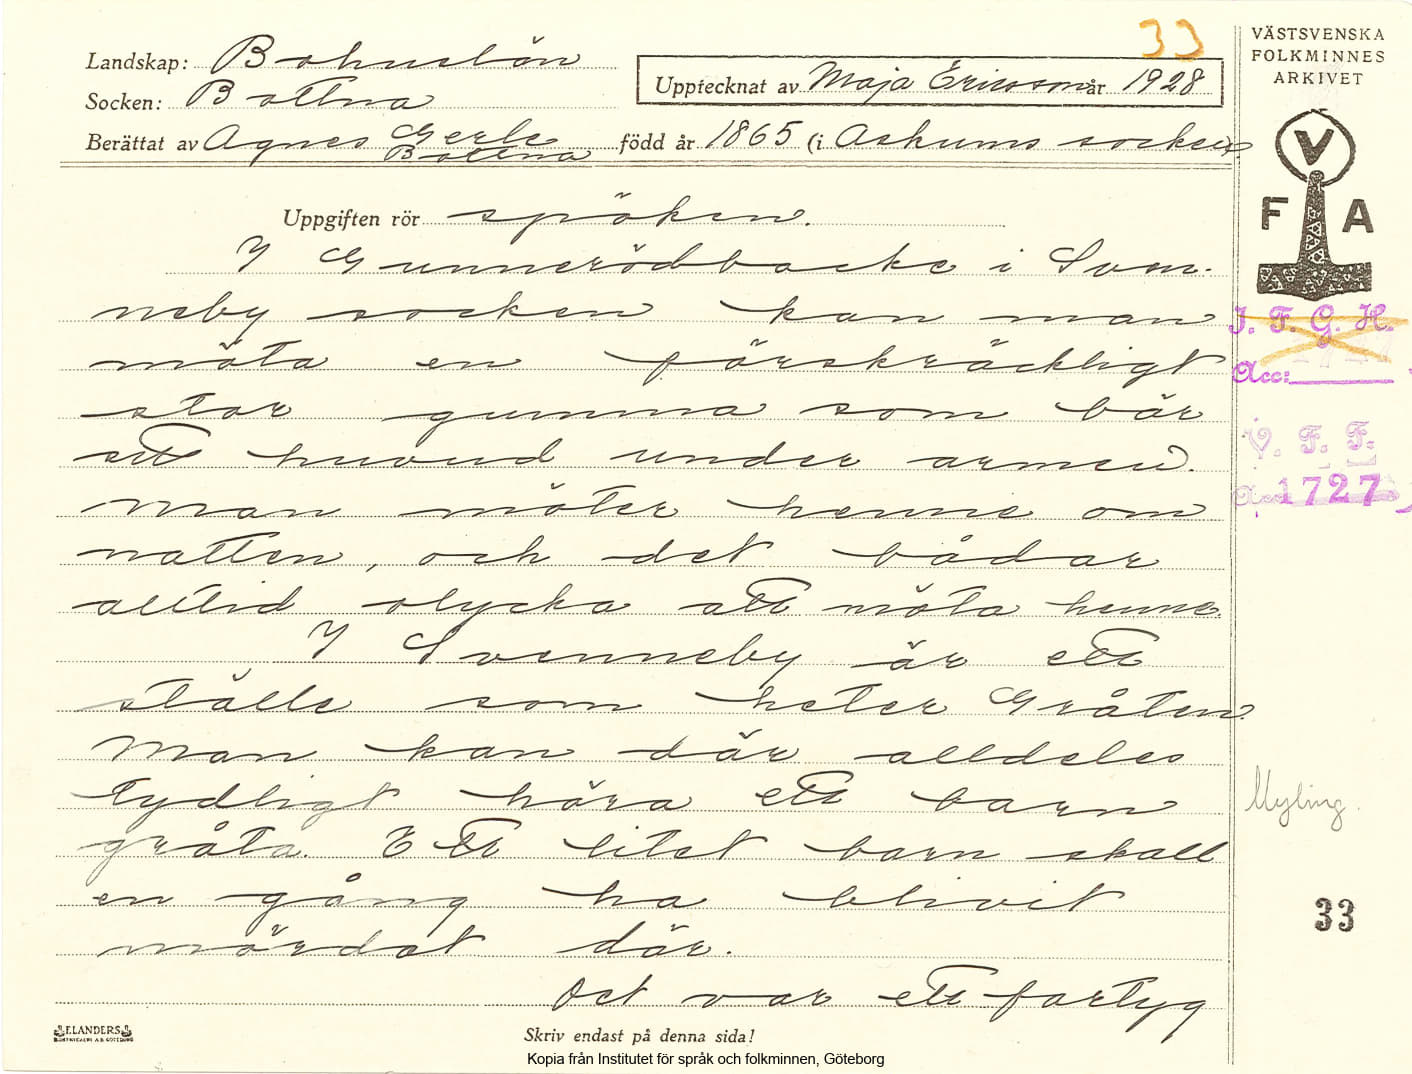 33
VÄSTSVENSKA
FOLKMINNES
ARKIVET
Landskap: Bohuslän
Socken: Bottna
Upptecknat av Maja Ericsson år 1928
Berättat av Agnes Gerle
Bottna
född år 1865 (i Askums socken)
V
F A
Uppgiften rör spöken.
I Gunnerödbacke i Sven-
neby socken kan man
möta en förskräckligt
stor gumma som bär
sitt huvud under armen.
Man möter henne om
natten, och det bådar
alltid olycka att möta henne.
I Svenneby är ett
ställe som heter Gråten
Man kan där alldeles
tydligt höra ett barn
gråta. Ett litet barn skall
en gång ha blivit
mördat där.
Det var ett fartyg
I. F. G. H.
Acc:
V. F. F.
Acc. 1727
Myling.
33
ELANDERS
BOKTRYCKERI A.B. GÖTEBORG
Skriv endast på denna sida!
Kopia från Institutet för språk och folkminnen, Göteborg